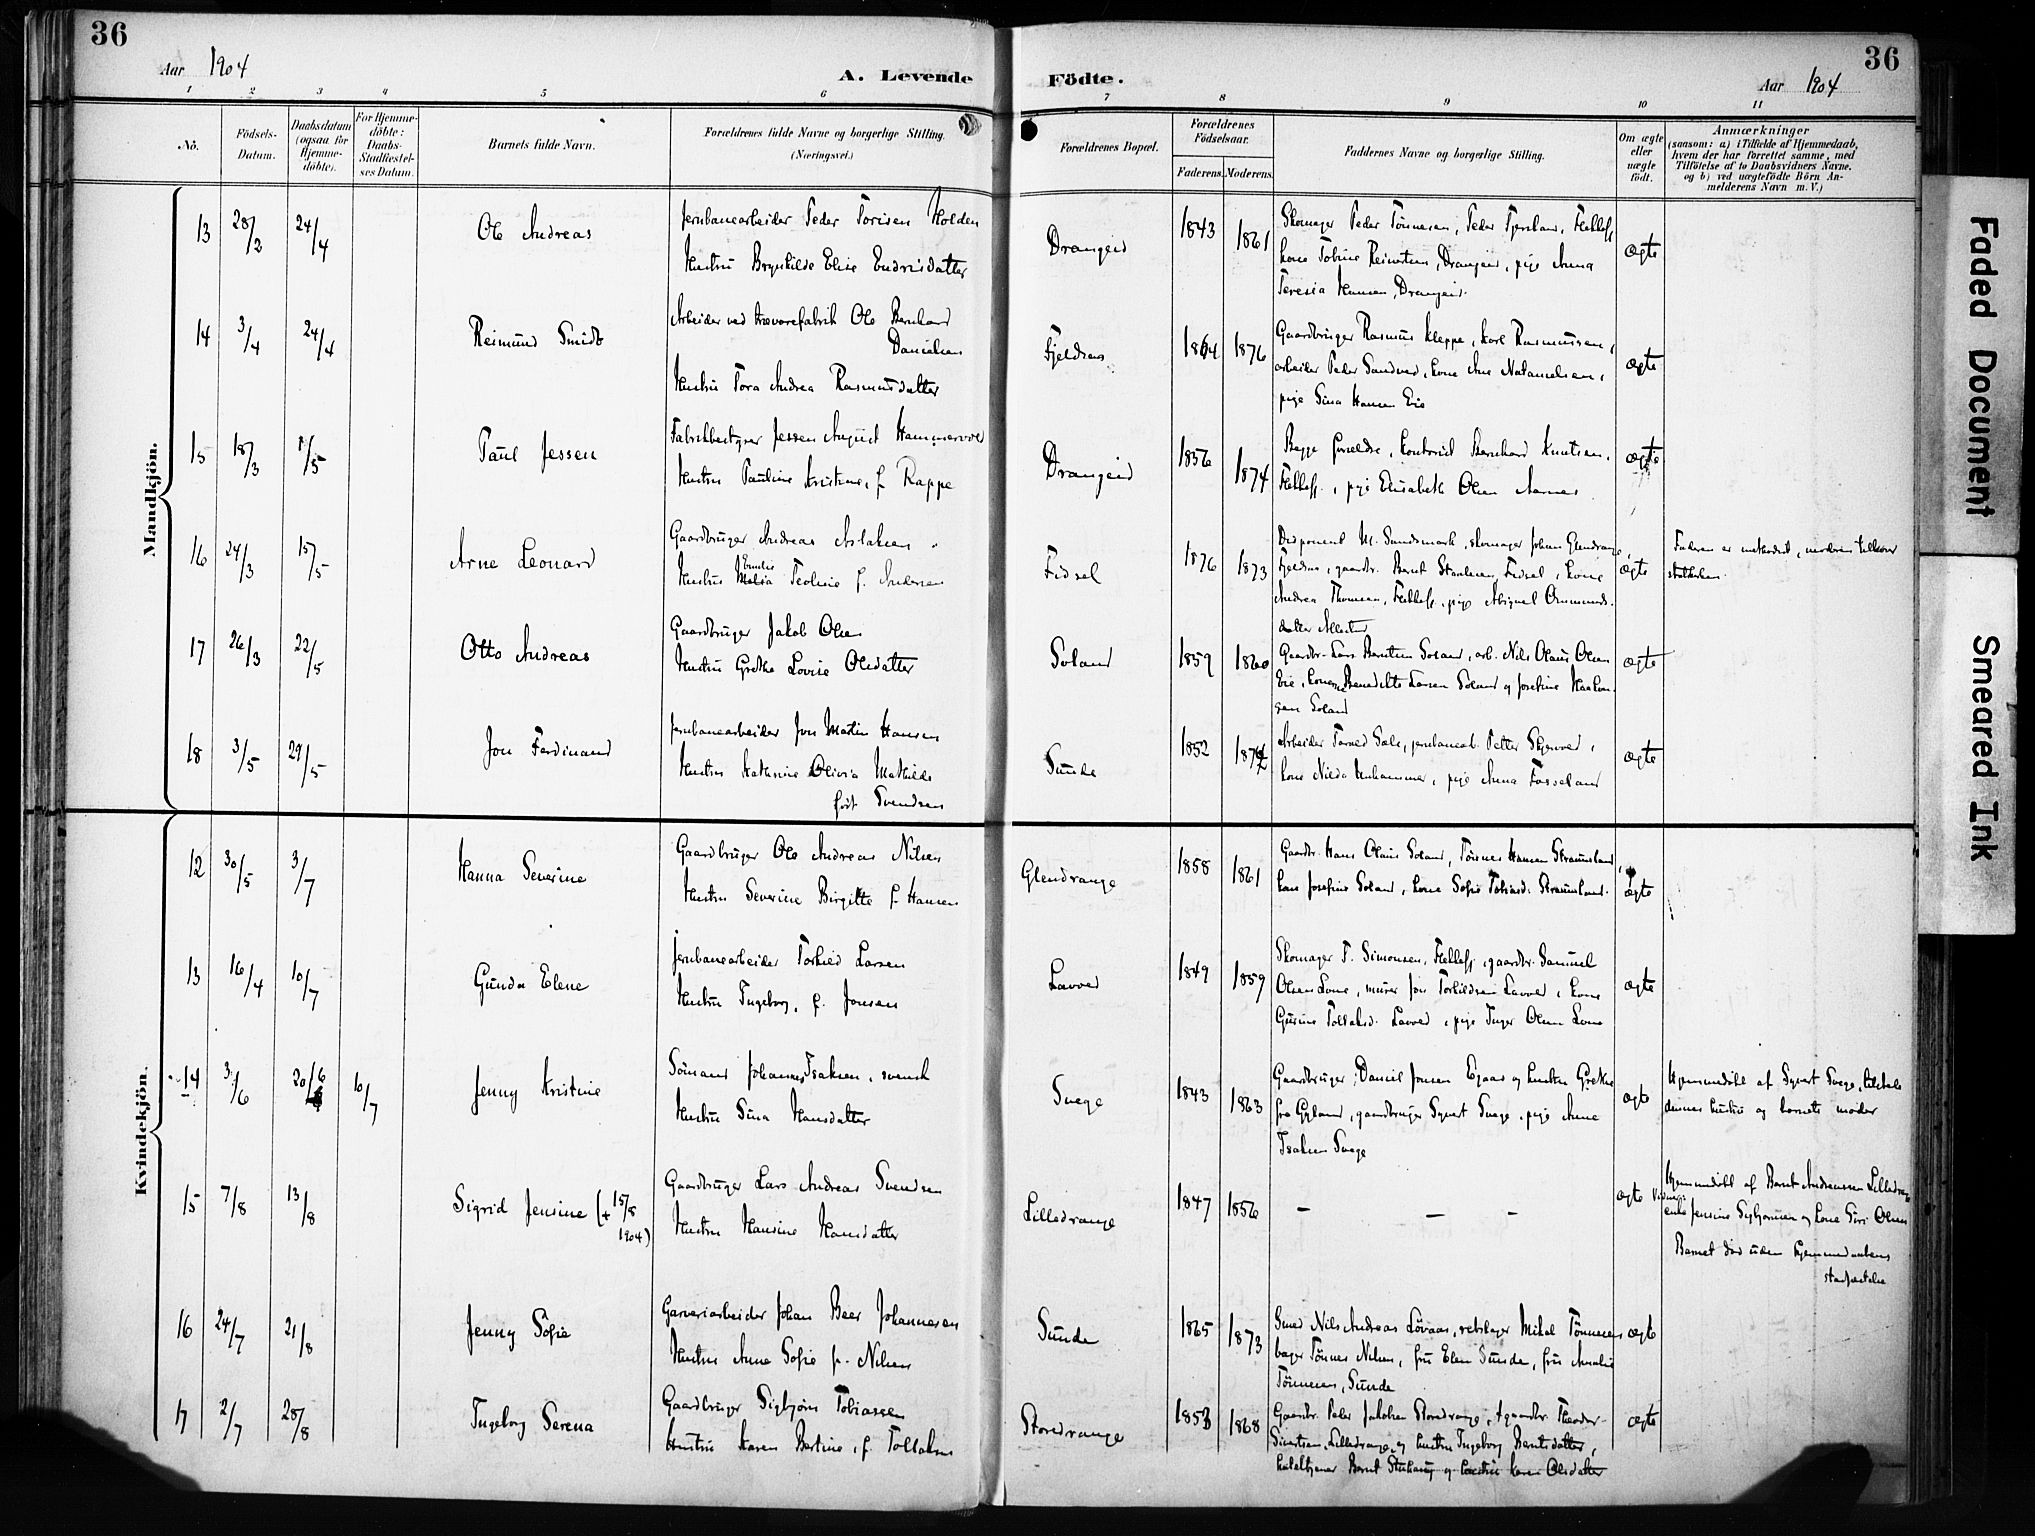 36
36
Aar 1904
A. Levende
Födte.
Aar 1904
1 2 3 4 5 6 7 8 9 10 11
Nö.
Födsels-Datum.
Daabsdatum (ogsaa for Hjemme-döbte).
For Hjemme-döbte: Daabs-Stadfæstel-ses Datum.
Barnets fulde Navn.
Forældrenes fulde Navne og borgerlige Stilling.
(Næringsvei.)
Forældrenes Bopæl.
Forældrenes Födselsaar.
Faderens. Moderens.
Faddernes Navne og borgerlige Stilling.
Om ægte eller uægte födt.
Anmærkninger
(saasom: a) i Tilfælde af Hjemmedaab, hvem der har forrettet samme, med Tilföielse af to Daabsvidners Navne. og b) ved uægtefödte Börn An-melderens Navn m. V.)
Mandkjön.
13 28/2 24/4 Ole Andreas
Jernbanearbeider Peder Torisen Holden
Hustru Brynhilde Elise Endresdatter
Drangeid 1843 1861
Skomager Peder Tönnesen, Peder
kone Tobine Reinertsen, Drangeid, pige Anna
Teresia Hansen, Drangeid.
ægte
14 3/4 24/4 Reimund Smidt
Arbeider ved trævarefabrik Ole Bernhard
Danielsen
Hustru Tora Andrea Rasmusdatter
Fjeldsaa 1864 1876
Gaardbruger Rasmus Kleppe, Karl Rasmussen,
arbeider Peder Sandved, kone Ane Natanielsen,
pige Sina Hansen Eie
ægte
15 18/3 1/5 Paul Jessen
Fabrikbestyrer Jessen August Hammervold
Hustru Pauline Kristine, f. Rappe
Drangeid 1856 1874
Begge forældre, kontorist Bernhard Knutsen,
pige Elisabeth Olsen Aarnes
ægte
16 24/3 15/5 Arne Leonard
Gaardbruger Andreas Aslaksen
Hustru Emilie Teoline f. Andersen
Fidsel 1876 1873
Disponent M. Sundsmark, skomager Johan Glendrange,
Fjeldsaa, gaardbr. Bernt Stenbersen Fidsel, kone
Andrea Thomsen, pige Abigael Ommunds-
datter
ægte
Faderen er methodist, moderen tilhører
statskirken.
17 26/3 22/5 Otto Andreas
Gaardbruger Jakob Olsen
Hustru Grethe Lovise Olsdatter
Soland 1859 1860
Gaardbr. Lars Berntsen Soland, arb. Nils Olaus Olsen
Eie, konerne Benedikte Larsen Soland og Josefine Haakon-
sen Soland
ægte
18 3/5 29/5 Jon Ferdinand
Jernbanearbeider Jon Martin Hansen
Hustru Kathrine Olivia Mathilde
født Svendsen
Sunde 1852
Arbeider Tarned Sæle, jernbanearb. Petter Skjerved,
kone pige Anna Fosseland
ægte
Kvindekjön.
12 30/5 3/7 Hanna Severine
Gaardbruger Ole Andreas Nilsen
Hustru Severine Birgitte f. Hansen
Glendrange 1858 1861
Gaardbr. Hans Olaus Soland, Tönnes Hansen Straumland,
kone Josefine Soland, kone Sofie Tobiasd. Straumland.
ægte
13 16/4 10/7 Gunda Elene
Jernbanearbeider Torkild Larsen
Hustru Ingeborg, f. Jonsen
Lavold 1849 1859
Skomager F. Simonsen, gaardbr. Samuel
Olsen Lone, murer Jon Torkildsen Lavold, kone
Gurine Tollaksd. Lavold, pige Inger Olsen Lone
ægte
14 3/6 20/6 10/7 Jenny Kristine
Sömand Johannes Isaksen, svensk
Hustru Sina Hansdatter
Svege 1843 1863
Gaardbruger Daniel Jonsen Egaas og hustru Grethe
fra Gyland, gaardbruger Syvert Svege, pige Anne
Isaksen Svege
ægte
Hjemmedøbt af Syvert Svege, tilstede
dennes hustru og barnets moder
15 7/8 13/8 Sigrid Jensine († 15/8
1904)
Gaardbruger Lars Andreas Svendsen
Hustru Hansine Hansdatter
Lilledrange 1847 1856 – – –
ægte
Hjemmedøbt af Bernt Andreassen Lilledrange
enke Jensine Sigbjørnsen og kone Siri Olsen
Barnet død uden hjemmedaabens
stadfæstelse
16 24/7 21/8 Jenny Sofie
Garveriarbeider Johan Beer Johannesen
Hustru Anne Sofie f. Nilsen
Sunde 1865 1873
Smed Nils Andreas Lövaas, rebslager Mikal Tönnesen,
bager Tönnes Nilsen, fru Elen Sunde, fru Amalie
Tönnesen, Sunde
ægte
17 2/7 28/8 Ingeborg Serena
Gaardbruger Sigbjörn Tobiassen
Hustru Karen Bertine, f. Tollaksen
Storedrange 1853 1868
Gaardbr. Peder Jakobsen Storedrange, gaardbr. Theodor
Sivertsen, Lilledrange, og hustru Ingeborg Berntsdatter,
Bernt og hustru Karen Olsdatter
ægte
Faded Document
Smeared Ink